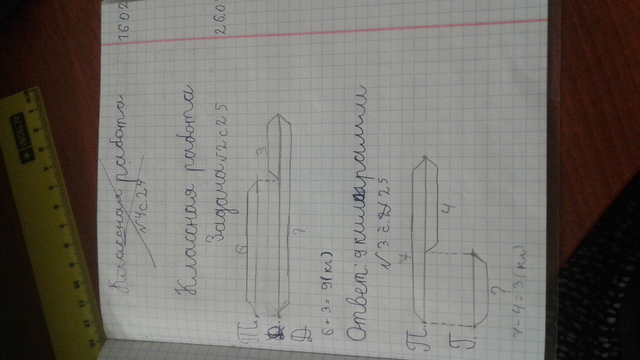 16.02
Классная работа.
№4 с 24
26.0
Классная работа
Задача №2 с 25
Т. 6 3
Д
Д ?
6 + 3 = 9 (кг)
Ответ: 9 килограммм
√3 с. 25
П. 7
4
Г. ?
7 - 4 = 3 (кг)